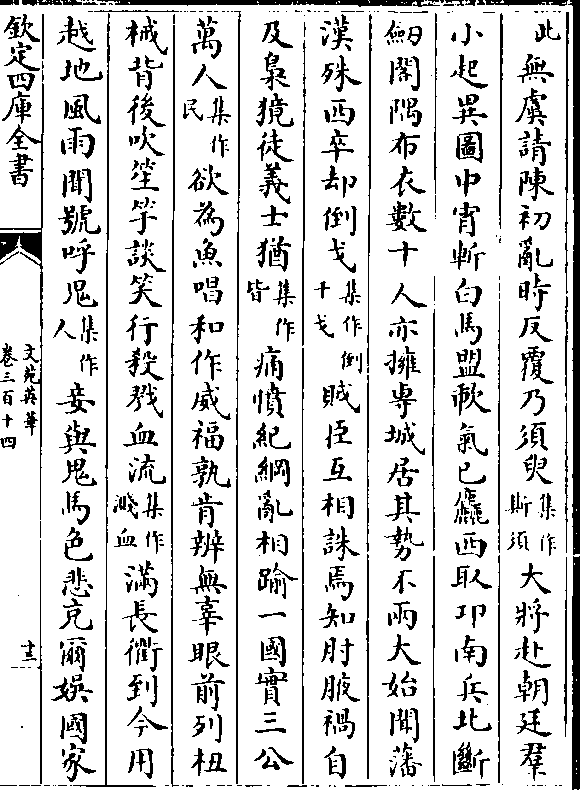 此無虞請陳初亂時反覆乃須臾集作斯須大將赴朝廷羣
小起異圖中宵斬白馬盟歃氣已麤西取卭南兵北斷
劒閣隅布衣數十人亦擁專城居其勢不兩大始聞藩
漢殊西卒却倒戈集作倒干戈賊臣互相誅焉知肘腋禍自
及梟獍徒義士猶集作皆痛憤紀綱亂相踰一國實三公
萬人集作民欲為魚唱和作威福孰肯辨無辜眼前列杻
械背後吹笙竽談笑行殺戮血流集作濺血滿長衢到今用
越地風雨聞號呼鬼集作人妾與鬼馬色悲充爾娛國家
欽定四庫全書
文苑英華
卷三百十四
十三